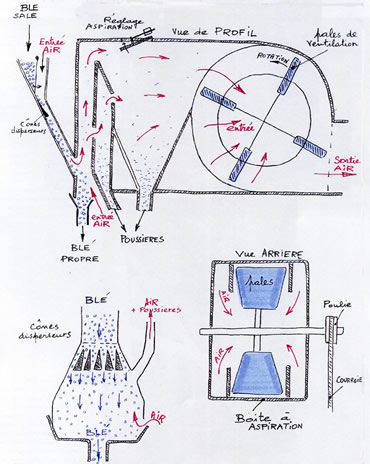 BLÉ
SALE
Réglage
ASPIRATION
Vue de PROFIL
pales de
Ventilation
Entrée
AIR
ROTATION
Cônes disperseurs
entrée
Sortie
AIR
entrée
AIR
BLÉ
PROPRE
POUSSIERES
Vue ARRIERE
pales
AIR
AIR
Poulie
COURROIE
Boîte à
ASPIRATION
BLÉ
AIR
+ Poussières
Cônes
disperseurs
AIR
BLÉ